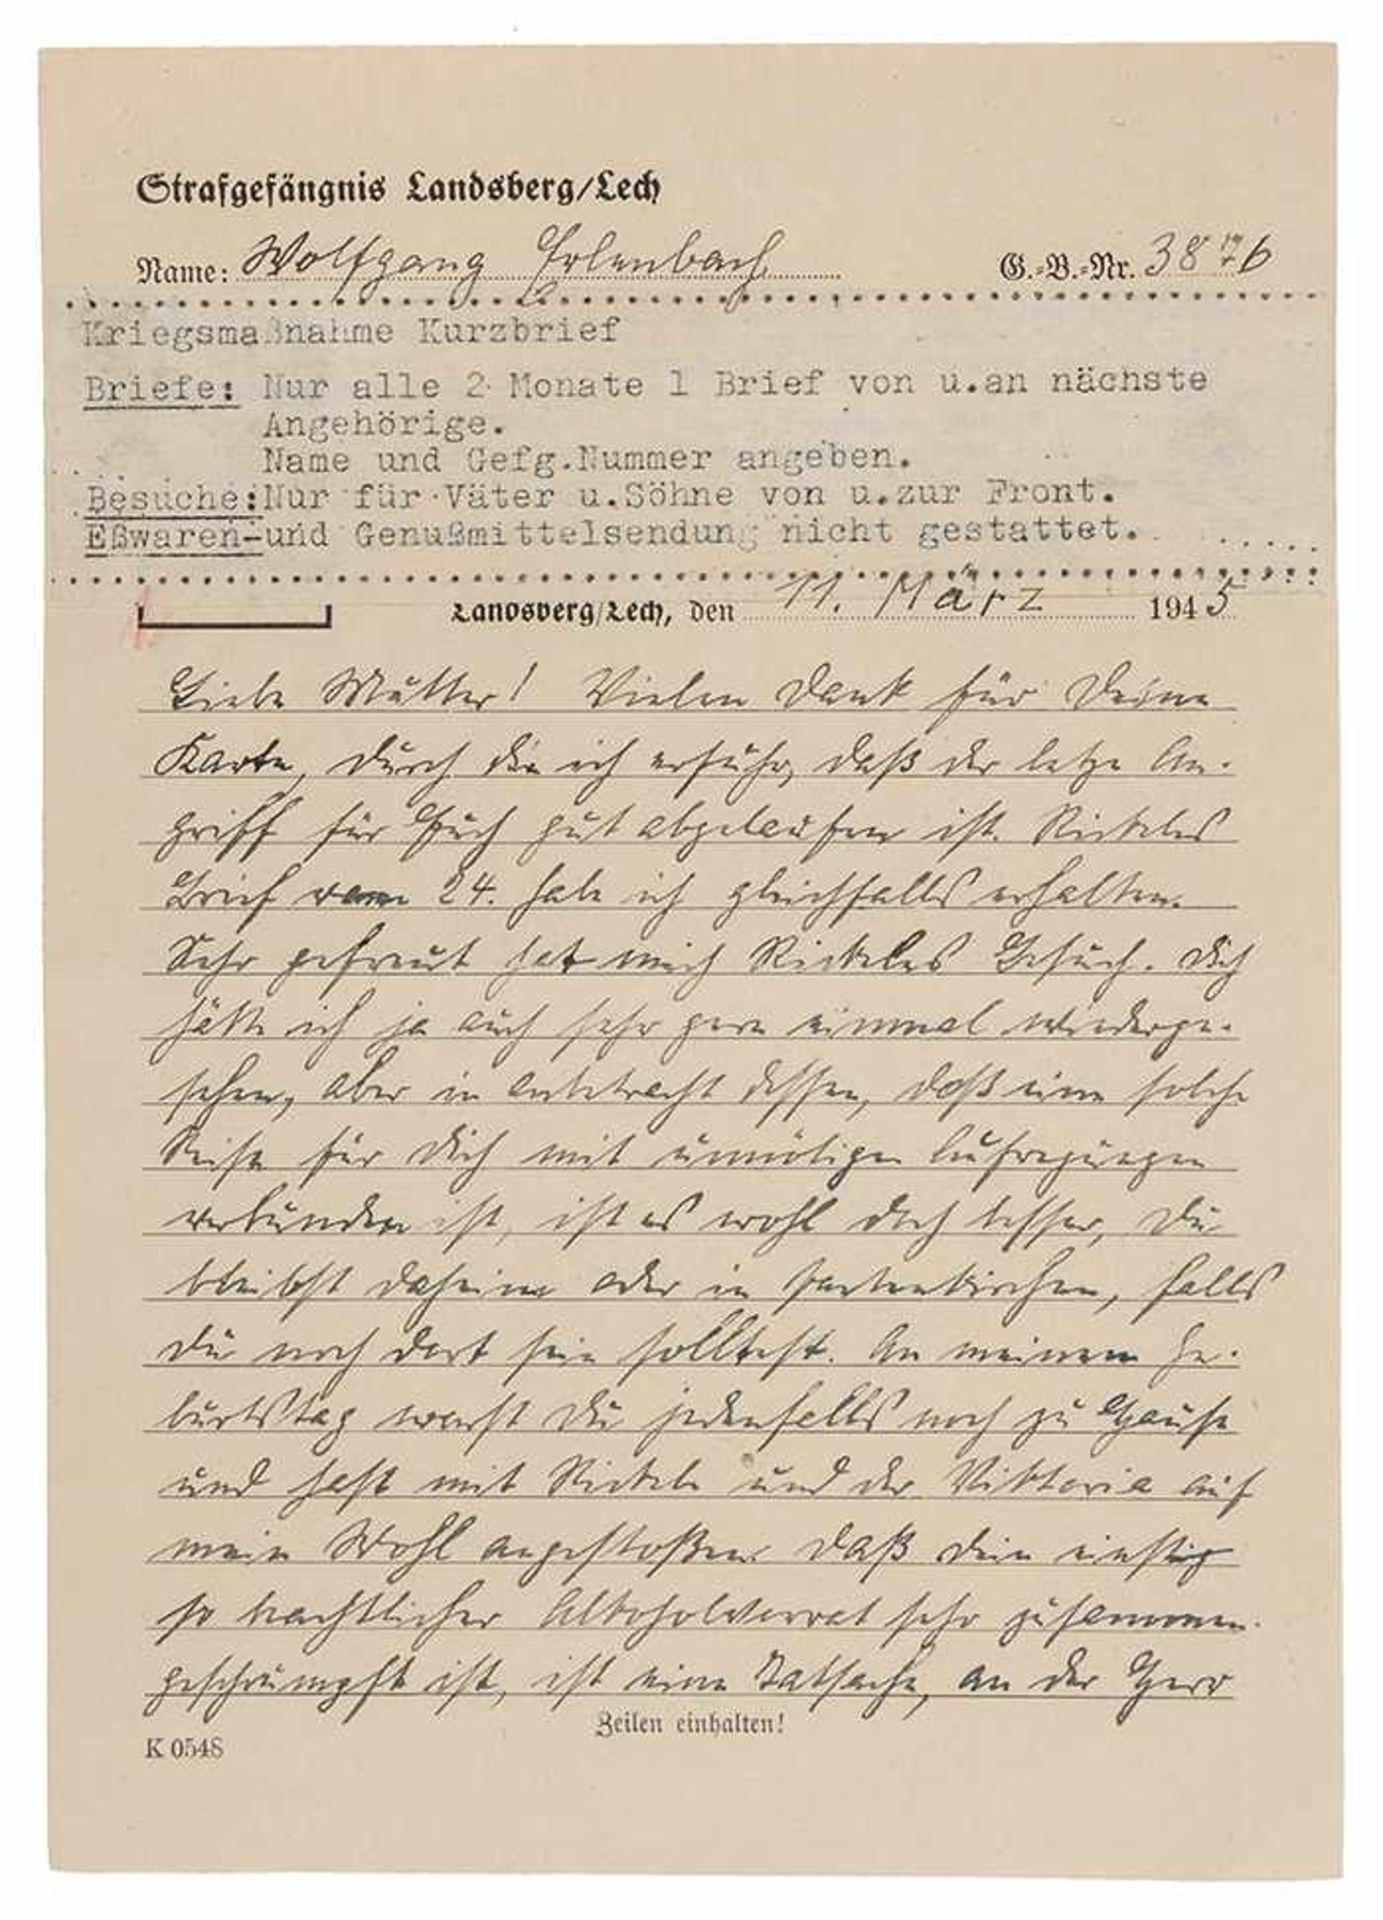 Strafgefängnis Landsberg/Lech
Name: Wolfgang Erlenbach G.-B.-Nr. 38 76
Kriegsmaßnahme Kurzbrief
Briefe: Nur alle 2 Monate 1 Brief von u.an nächste
Angehörige.
Name und Gefg.Nummer angeben.
Besuche:Nur für Väter u.Söhne von u.zur Front.
Eßwaren-und Genußmittelsendung nicht gestattet.
Landsberg/Lech, den 11. März 1945
Liebe Mutter! Vielen Dank für Deine
Karte, durch die ich erfuhr, daß der letze An-
griff für Euch gut abgelaufen ist. Rickeles
Brief vom 24. habe ich gleichfalls erhalten.
Sehr gefreut hat mich Rickeles Besuch. Dich
hätte ich ja auch sehr gern einmal wiederge-
sehen, aber in anbetracht dessen, daß eine solche
Reise für Dich mit unnötigen Aufregungen
verbunden ist, ist es wohl doch besser, Du
bleibst daheim oder in Partenkirchen, falls
Du noch dort sein solltest. An meinem Ge-
burtstag warst Du jedenfalls noch zu Hause
und hast mit Rickele und der Viktoria auf
mein Wohl angestoßen. Daß Dein einstig
so beachtlicher Alkoholvorrat sehr zusammen-
geschrumpft ist, ist eine Tatsache, an der Herr
Zeilen einhalten!
K 0548